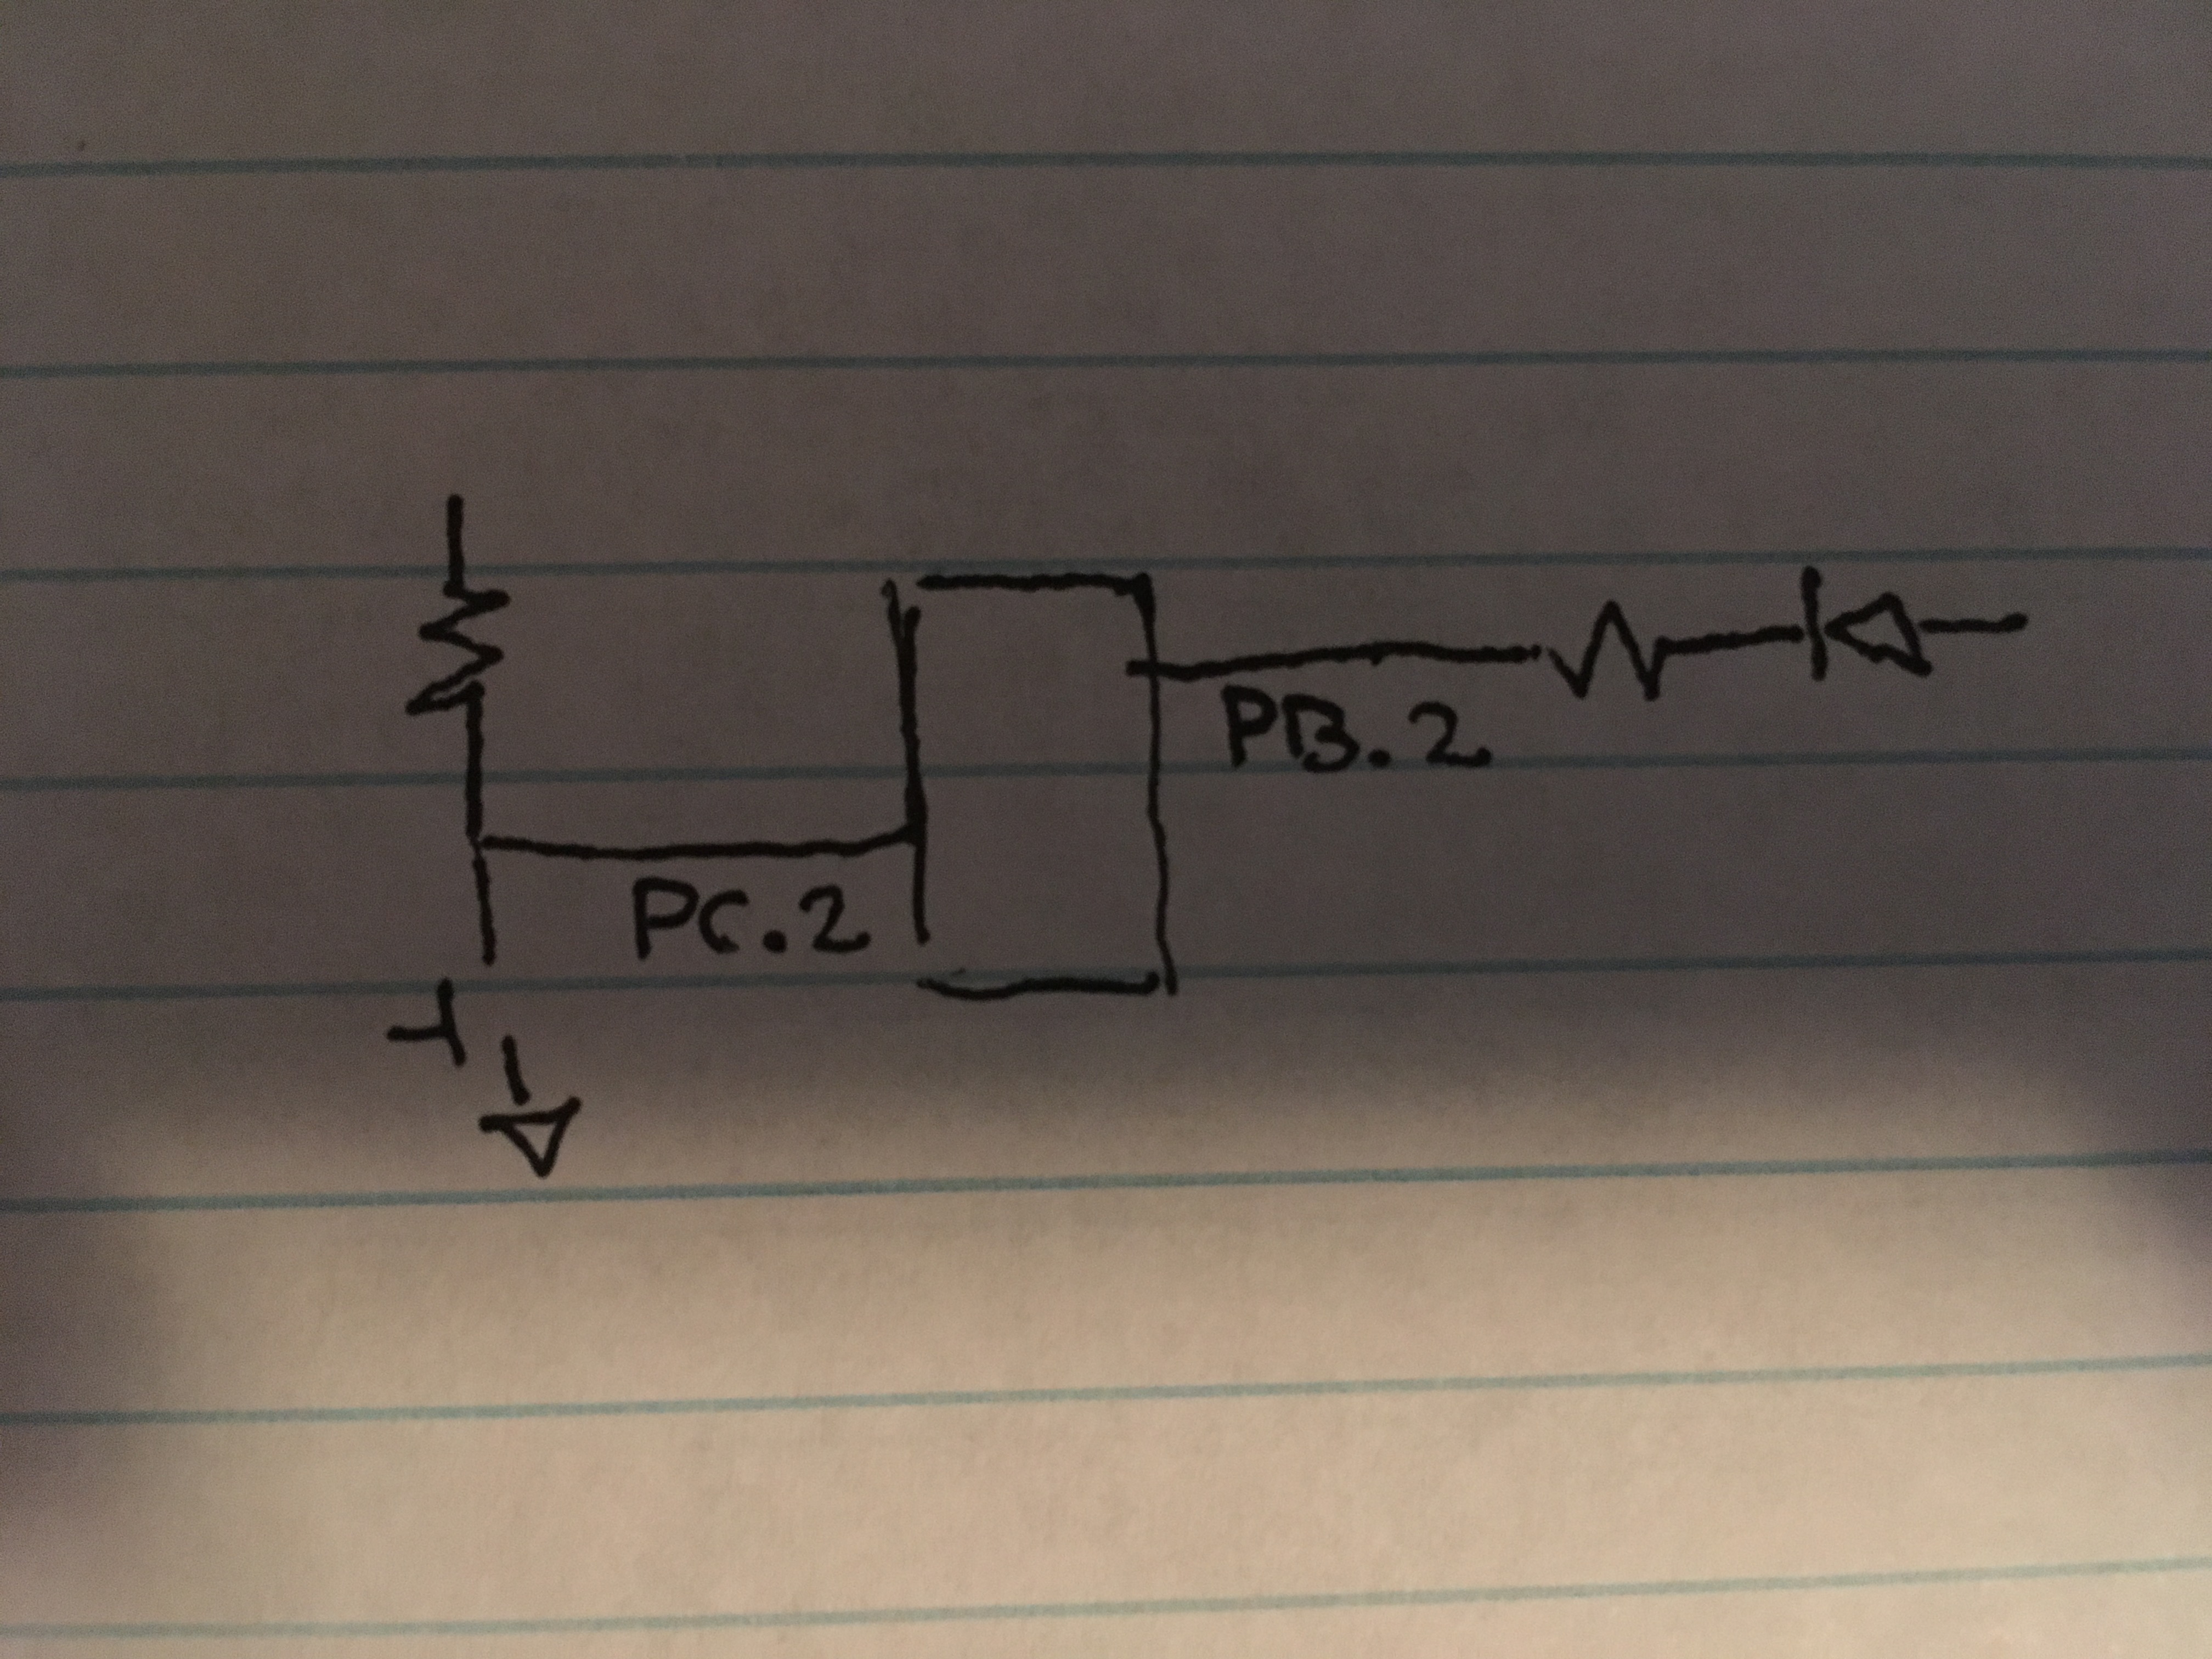 PB.2
PC.2